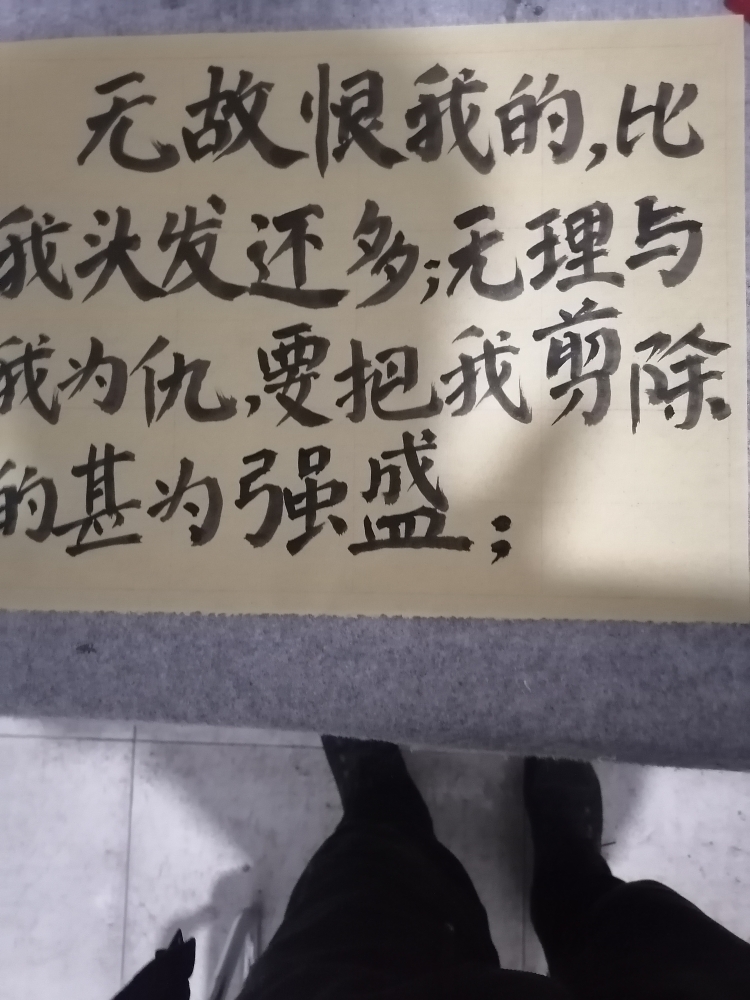 无故恨我的,比
我头发还多;无理与
我为仇,要把我剪除
的甚为强盛;